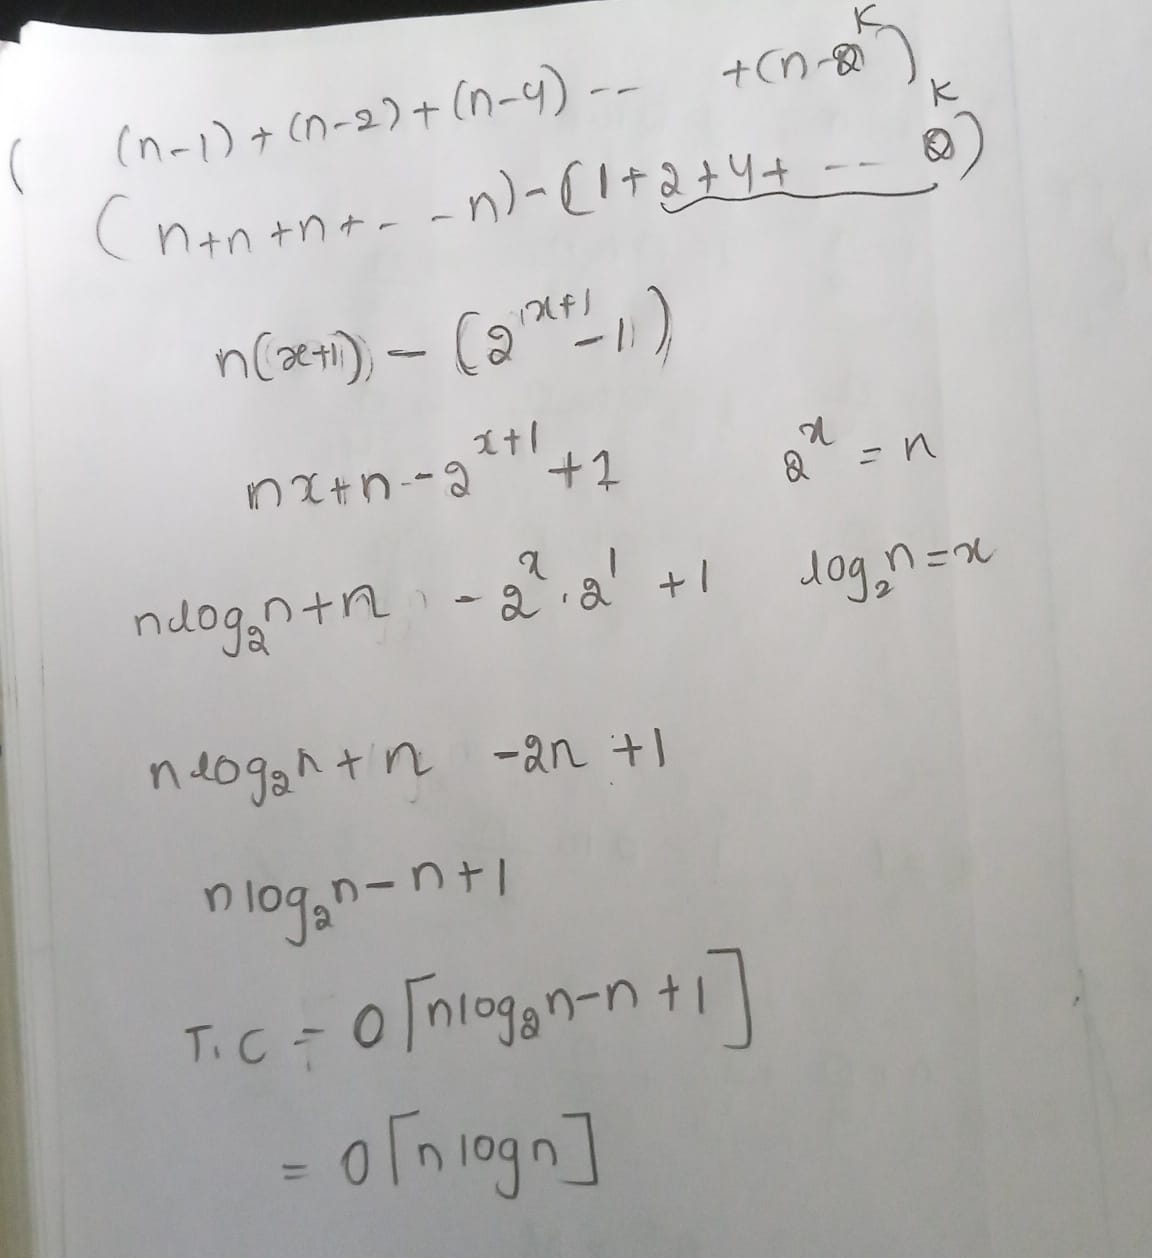 ( (n-1) + (n-2) + (n-4) -- +(n-2^K)
(n+n+n+-- n) - (1+2+4+ -- 2^K)
n(x+1) - (2^(x+1) - 1)
nx+n - 2^(x+1) + 1 2^x = n
nlog₂n + n - 2^x . 2^1 + 1 log₂n = x
nlog₂n + n - 2n + 1
nlog₂n - n + 1
T.C = O[nlog₂n - n + 1]
= O[n logn]